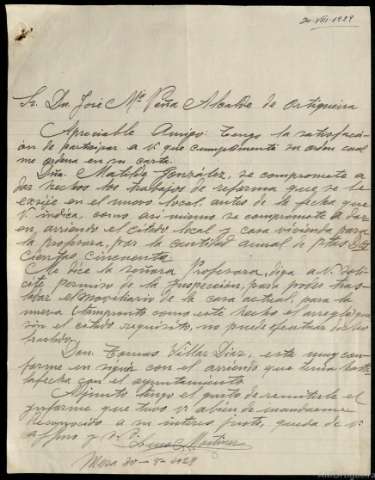 20-VIII-1929
Sr. Dn. José Mª Peña Alcalde de Ortigueira
Apreciable Amigo: Tengo la satisfación
de participar a V. que cumplimente su orden cual
me ordena en su carta.
Dña. Matilde González, se compromete a
dar hechos los trabajos de reforma que se le
exije en el nuevo local, antes de la fecha que
V. indica, como, asi mismo se compromete a dar
en, arriendo el citado local y casa vivienda para
la profesora, por la cantidad anual de ptas
Cientas Cincuenta
Me dice la señora Profesora, diga a V. soli
cite permiso de la Inspección, para poder tras
ladar el moviliario de la casa actual, para la
nueva tampronto como esté hecho el arreglo que
sin el citado requisito, no puede efectuar dicho
traslado.
Don. Tomas Villar Diaz, está muy con
forme en seguir con el arriendo que tenia hasta
la fecha con el ayuntamiento
Adjunto tengo el gusto de remitirle el
informe que tuvo V. a bien de mandarme
Reconocido a su interes justo, queda de V.
affmo y s.s.
Martinez
Mera 20-8-1929